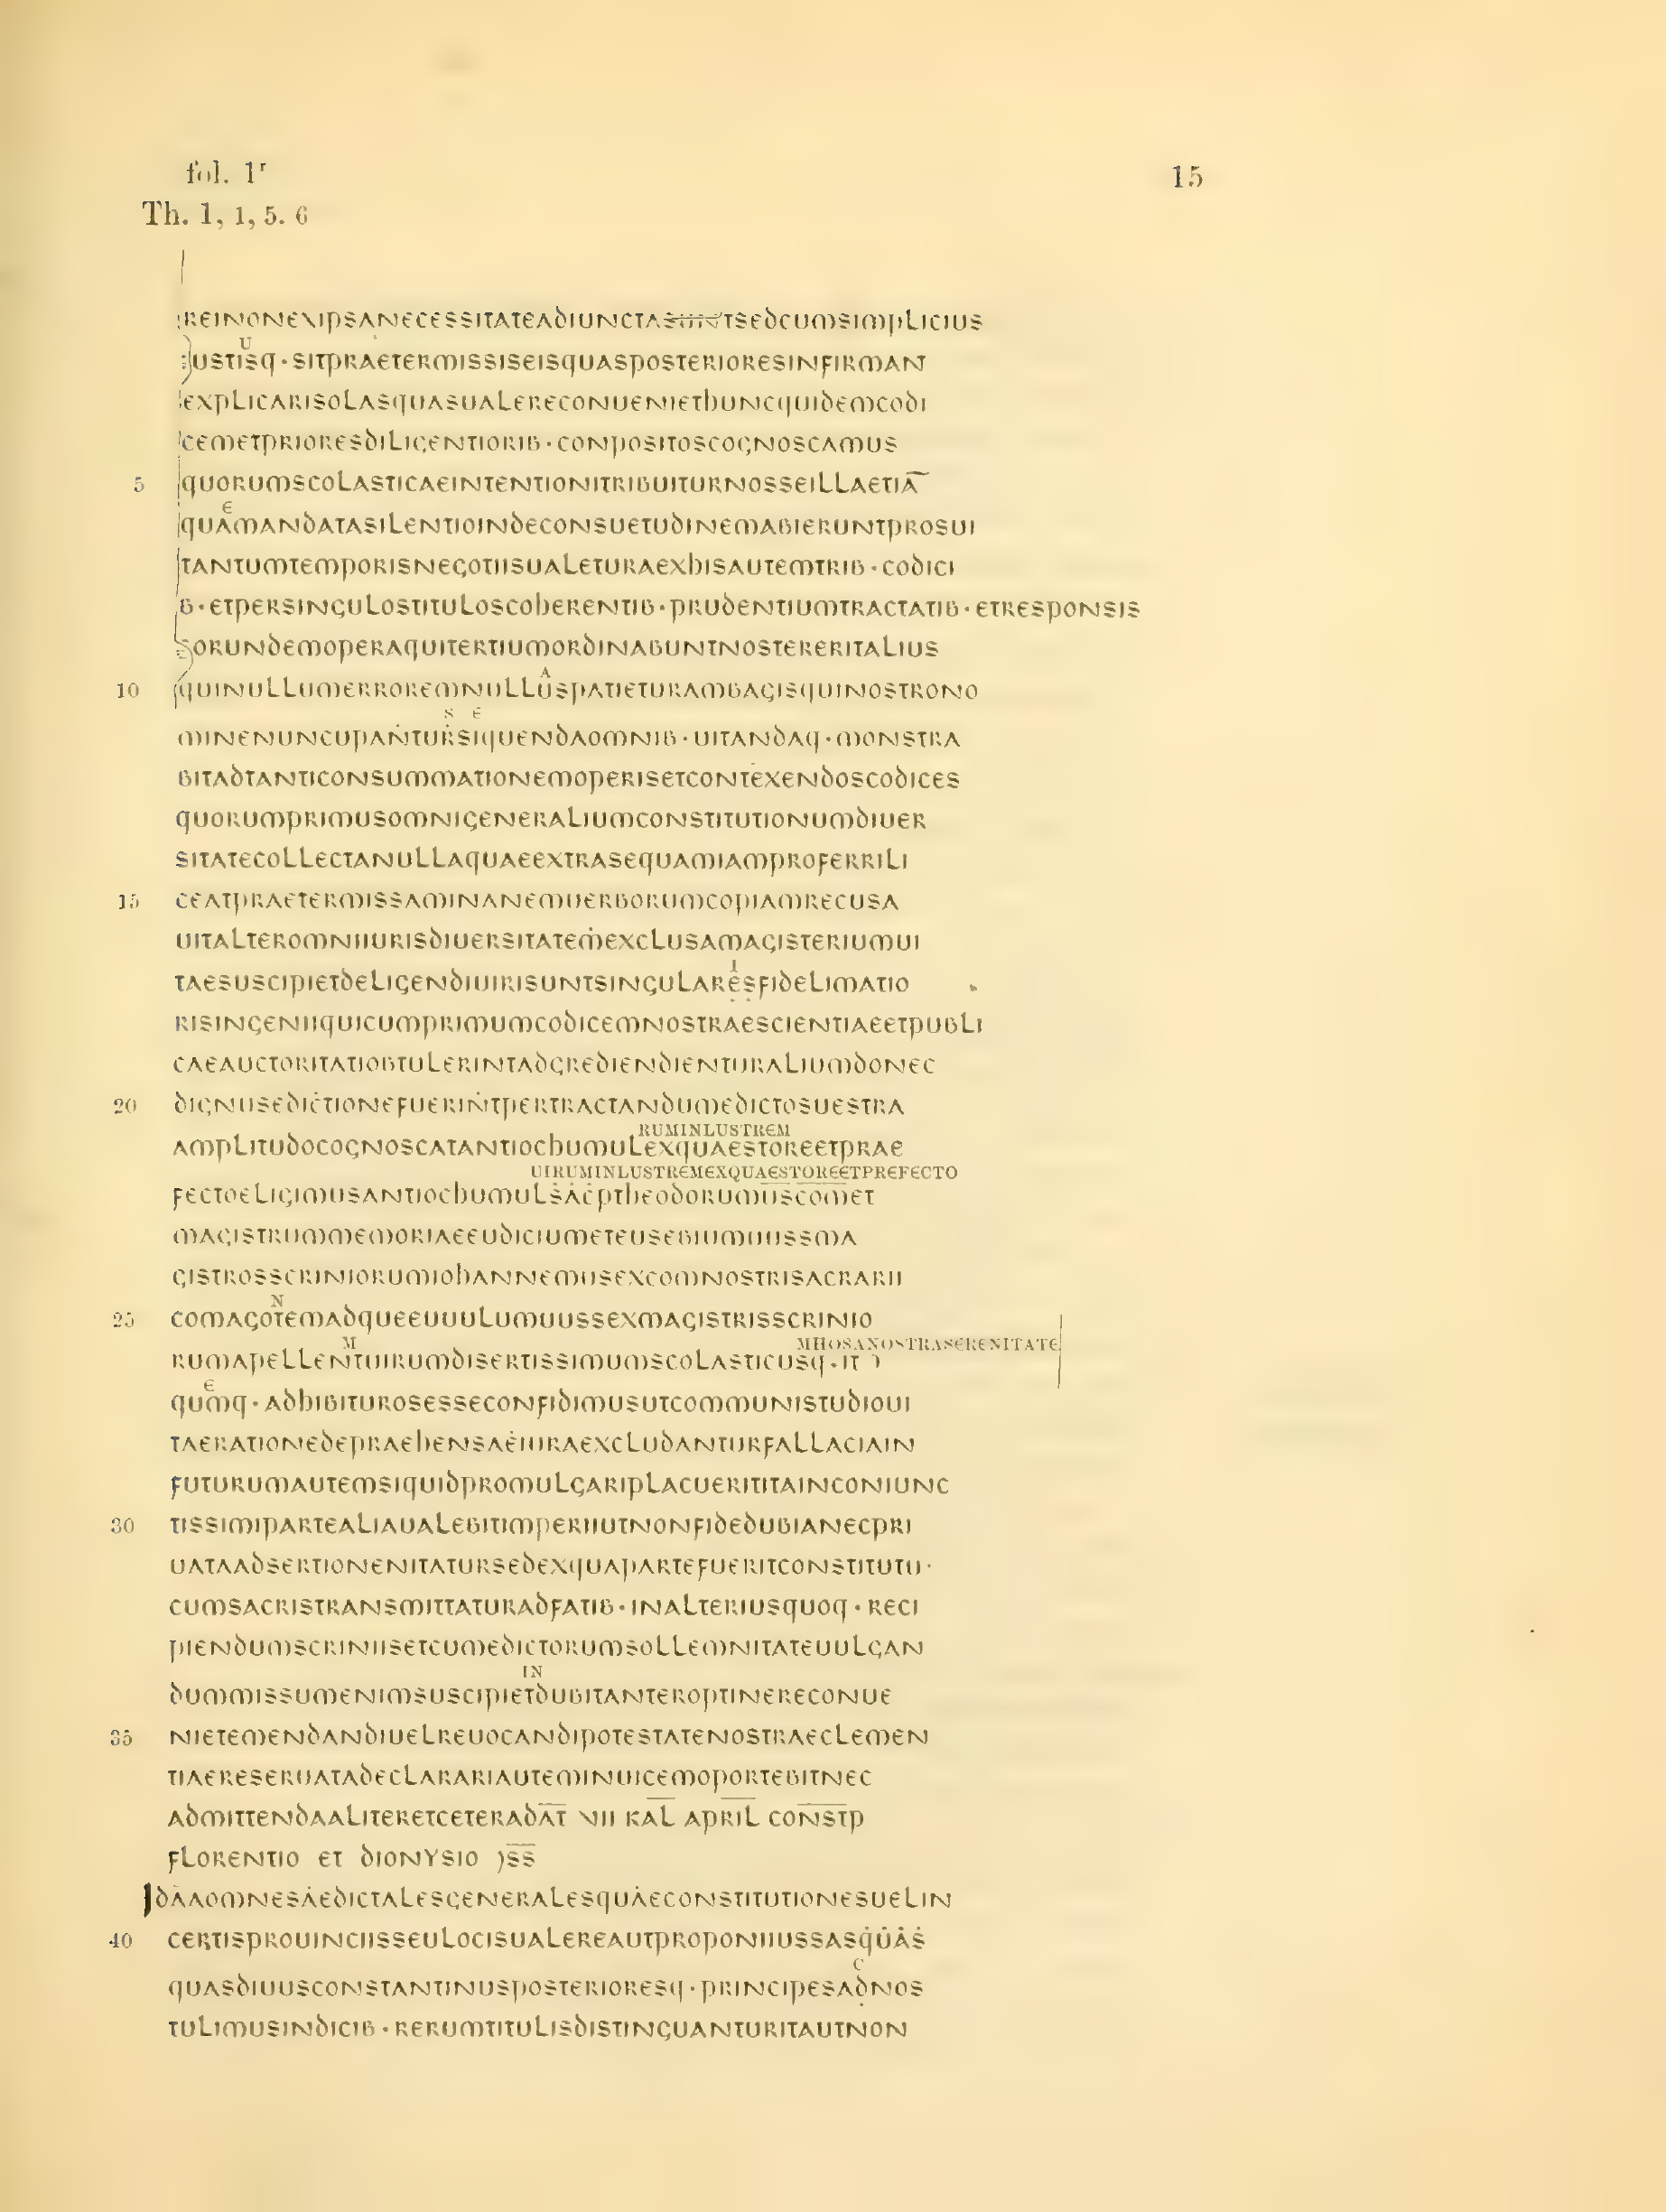 fol. 1r
15
Th. 1, 1, 5. 6
REINONEXIPSANECESSITATEADIUNCTASINTSEDCUMSIMPLICIUS
U
IUSTISQ·SITPRAETERMISSISEISQUASPOSTERIORESINFIRMANT
EXPLICARISOLASQUASUALERECONUENIETHUNCQUIDEMCODI
CEMETPRIORESDILIGENTIORIB·CONPOSITOSCOGNOSCAMUS
5 QUORUMSCOLASTICAEINTENTIONITRIBUITURNOSSEILLAETIĀ
E
QUAMANDATASILENTIOINDECONSUETUDINEMABIERUNTPROSUI
TANTUMTEMPORISNEGOTIISUALETURAEXHISAUTEMTRIB·CODICI
B·ETPERSINGULOSTITULOSCOHERENTIB·PRUDENTIUMTRACTATIB·ETRESPONSIS
EORUNDEMOPERAQUITERTIUMORDINABUNTNOSTERERITALIUS
A
10 QUINULLUMERROREMNULLUSPATIETURAMBAGISQUINOSTRONO
S E
MINENUNCUPAṄTUṘSIQUENDAOMNIB·UITANDAQ·MONSTRA
BITADTANTICONSUMMATIONEMOPERISETCONTEXENDOSCODICES
QUORUMPRIMUSOMNIGENERALIUMCONSTITUTIONUMDIUER
SITATECOLLECTANULLAQUAEEXTRASEQUAMIAMPROFERRILI
15 CEATPRAETERMISSAMINANEMUERBORUMCOPIAMRECUSA
UITALTEROMNIIURISDIUERSITATEṀEXCLUSAMAGISTERIUMUI
I
TAESUSCIPIETDELIGENDIUIRISUNTSINGULARESFIDELIMATIO
RISINGENIIQUICUMPRIMUMCODICEMNOSTRAESCIENTIAEETPUBLI
CAEAUCTORITATIOBTULERINTADGREDIENDIENTURALIUMDONEC
20 DIGNUSEDIĊTIONEFUERIṄTPERTRACTANDUMEDICTOSUESTRA
RUMINLUSTREM
AMPLITUDOCOGNOSCATANTIOCHUMULEXQUAESTOREETPRAE
UIRUMINLUSTREMEXQUAESTOREETPREFECTO
FECTOELIGIMUSANTIOCHUMULṠȦĊPTHEODORUMUSCOMET
MAGISTRUMMEMORIAEEUDICIUMETEUSEBIUMUUSSMA
GISTROSSCRINIORUMIOHANNEMUSEXCOMNOSTRISACRARII
N
25 COMAGOTEMADQUEEUUULUMUUSSEXMAGISTRISSCRINIO
M MHOSANOSTRASERENITATE
RUMAPELLENTUIRUMDISERTISSIMUMSCOLASTICUSQ·IT
E
QUMQ·ADHIBITUROSESSECONFIDIMUSUTCOMMUNISTUDIOUI
TAERATIONEDEPRAEHENSAĖIURAEXCLUDANTURFALLACIAIN
FUTURUMAUTEMSIQUIDPROMULGARIPLACUERITITAINCONIUNC
30 TISSIMIPARTEALIAUALEBITIMPERIIUTNONFIDEDUBIANECPRI
UATAADSERTIONENITATURSEDEXQUAPARTEFUERITCONSTITUTU·
CUMSACRISTRANSMITTATURADFATIB·INALTERIUSQUOQ·RECI
PIENDUMSCRINIISETCUMEDICTORUMSOLLEMNITATEUULGAN
IN
DUMMISSUMENIMSUSCIPIETDUBITANTEROPTINERECONUE
35 NIETEMENDANDIUELREUOCANDIPOTESTATENOSTRAECLEMEN
TIAERESERUATADECLARARIAUTEMINUICEMOPORTEBITNEC
ADMITTENDAALITERETCETERADA̅T̅ VII KA̅L̅ APRI̅L̅ CON̅S̅T̅P
FLORENTIO ET DIONYSIO )S̅S̅
IDȦAOMNESȦEDICTALESGENERALESQUȦECONSTITUTIONESUELIN
40 CERTISPROUINCIISSEULOCISUALEREAUTPROPONIIUSSASQ̇U̇ȦṠ
C
QUASDIUUSCONSTANTINUSPOSTERIORESQ·PRINCIPESAḌNOS
TULIMUSINDICIB·RERUMTITULISDISTINGUANTURITAUTNON